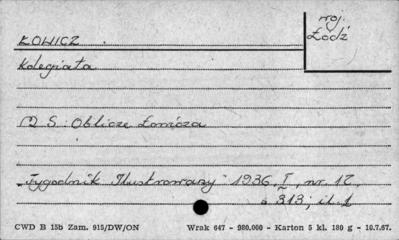 woj.
Łódź
ŁOWICZ
Kolegiata
M S : Oblicze Łowicza
"Tygodnik Ilustrowany" 1936, I, nr. 17,
s. 313; il. 1
CWD B 15b Zam. 915/DW/ON Wrak 647 - 980.000 - Karton 5 kl. 180 g - 10.7.67.